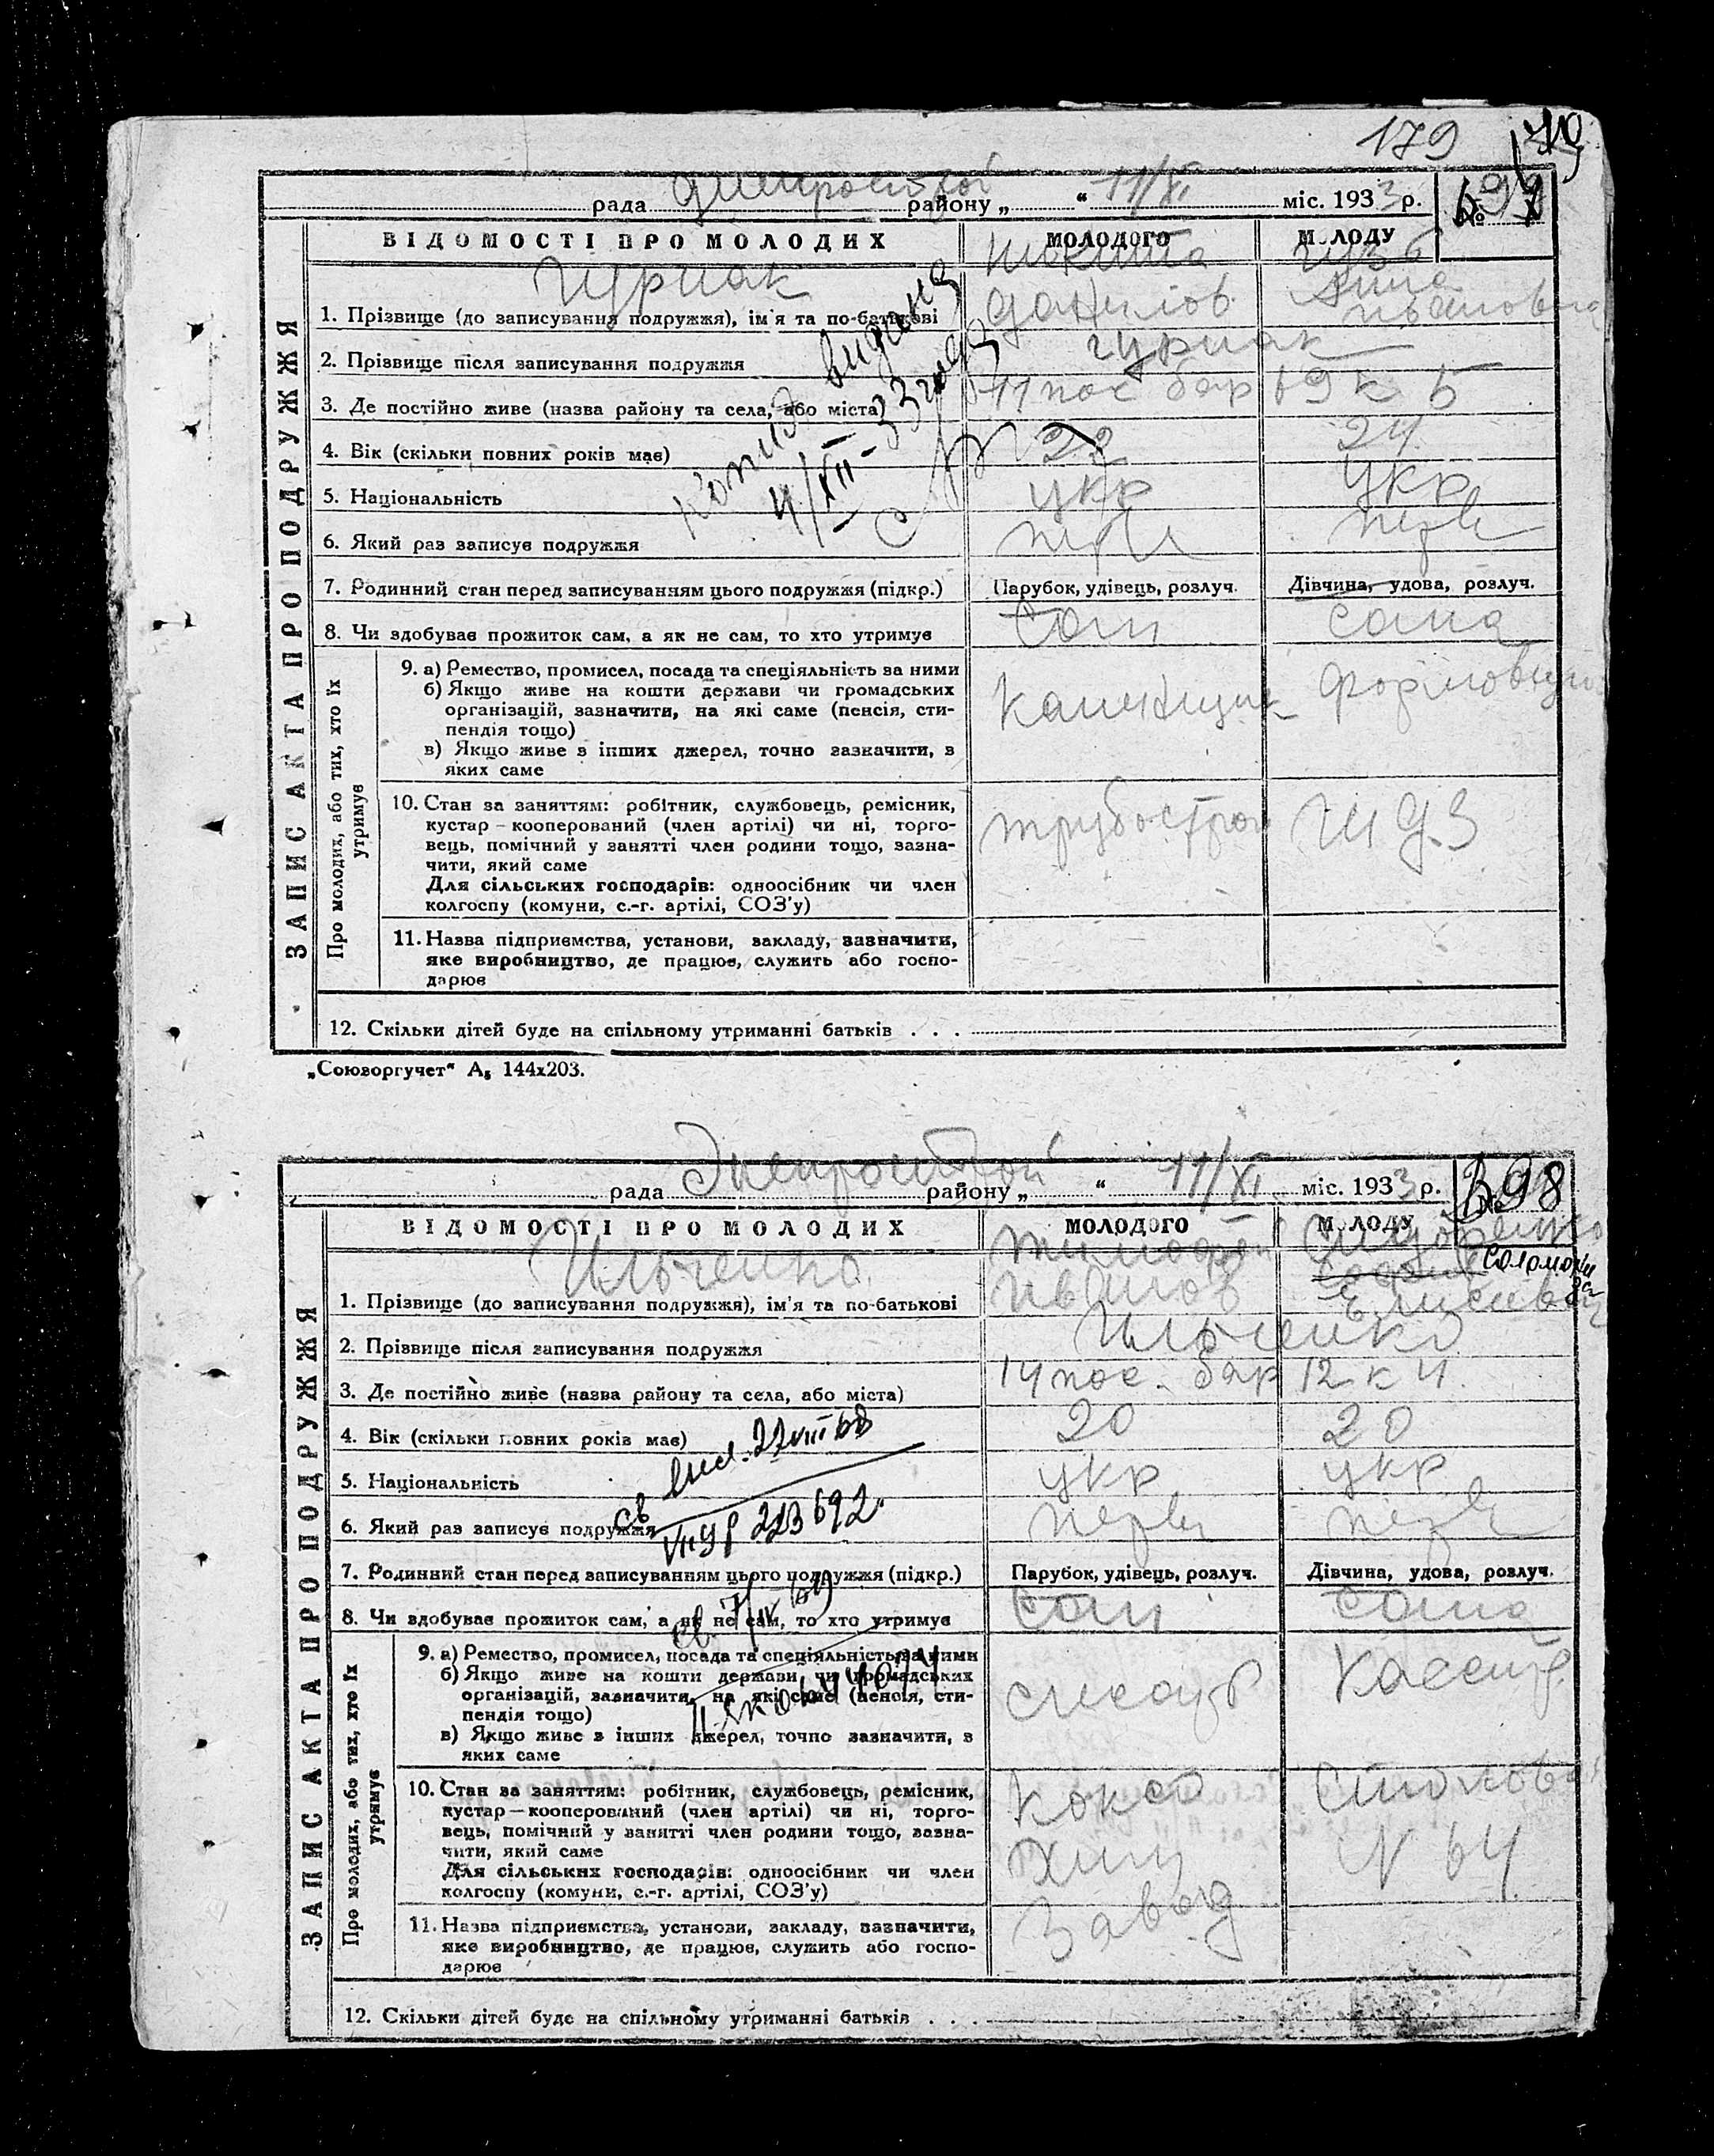 179
Днепрострой
рада района „ “ 11/XI міс. 1933 р. №
ВІДОМОСТІ ПРО МОЛОДИХ МОЛОДОГО МОЛОДУ
ЗАПИС АКТА ПРО ПОДРУЖЖЯ
Никита
Анна
1. Прізвище (до записування подружжя), ім'я та по-батькові Данилов. Ивановна
2. Прізвище після записування подружжя
3. Де постійно живе (назва району та села, або міста) 11 пос бар 69 к 5
4. Вік (скільки повних років має) 22 24
5. Національність укр укр
6. Який раз записує подружжя перв перв
Копия видана
4/XII-33 года
7. Родинний стан перед записуванням цього подружжя (підкр.) Парубок, удівець, розлуч. Дівчина, удова, розлуч.
8. Чи здобуває прожиток сам, а як не сам, то хто утримує сам сама
Про молодих, або тих, хто їх утримує
9. а) Ремество, промисел, посада та спеціяльність за ними
б) Якщо живе на кошти держави чи громадських
організацій, зазначити, на які саме (пенсія, сти-
пендія тощо)
в) Якщо живе з інших джерел, точно зазначити, в
яких саме
Каменщик
10. Стан за заняттям: робітник, службовець, ремісник,
кустар – кооперований (член артілі) чи ні, торго-
вець, помічний у занятті член родини тощо, зазна-
чити, який саме
Для сільських господарів: одноосібник чи член
колгоспу (комуни, с.-г. артілі, СОЗ'у)
трубострой
11. Назва підприємства, установи, закладу, зазначити,
яке виробництво, де працює, служить або госпо-
дарює
12. Скільки дітей буде на спільному утриманні батьків . . .
„Союзоргучет“ А5 144х203.
Днепрострой
рада району „ “ 11/XI міс. 1933 р. № 98
ВІДОМОСТІ ПРО МОЛОДИХ МОЛОДОГО МОЛОДУ
ЗАПИС АКТА ПРО ПОДРУЖЖЯ
Ильченко Тимофей
1. Прізвище (до записування подружжя), ім'я та по-батькові Иванов
2. Прізвище після записування подружжя Ильченко
3. Де постійно живе (назва району та села, або міста) 14 пос. бар 12 к 4.
4. Вік (скільки повних років має) 20 20
5. Національність укр укр
6. Який раз записує подружжя перв перв
7. Родинний стан перед записуванням цього подружжя (підкр.) Парубок, удівець, розлуч. Дівчина, удова, розлуч.
8. Чи здобуває прожиток сам, а як не сам, то хто утримує сам сама
Про молодих, або тих, хто їх утримує
9. а) Ремество, промисел, посада та спеціяльність за ними
б) Якщо живе на кошти держави чи громадських
організацій, зазначити, на які саме (пенсія, сти-
пендія тощо)
в) Якщо живе з інших джерел, точно зазначити, з
яких саме
слесарь Кассир
10. Стан за заняттям: робітник, службовець, ремісник,
кустар – кооперований (член артілі) чи ні, торго-
вець, помічний у занятті член родини тощо, зазна-
чити, який саме
Для сільських господарів: одноосібник чи член
колгоспу (комуни, с.-г. артілі, СОЗ'у)
Коксо
Хим
Завод
Столовая
N 64
11. Назва підприємства, установи, закладу, зазначити,
яке виробництво, де працює, служить або госпо-
дарює
12. Скільки дітей буде на спільному утриманні батьків . . .